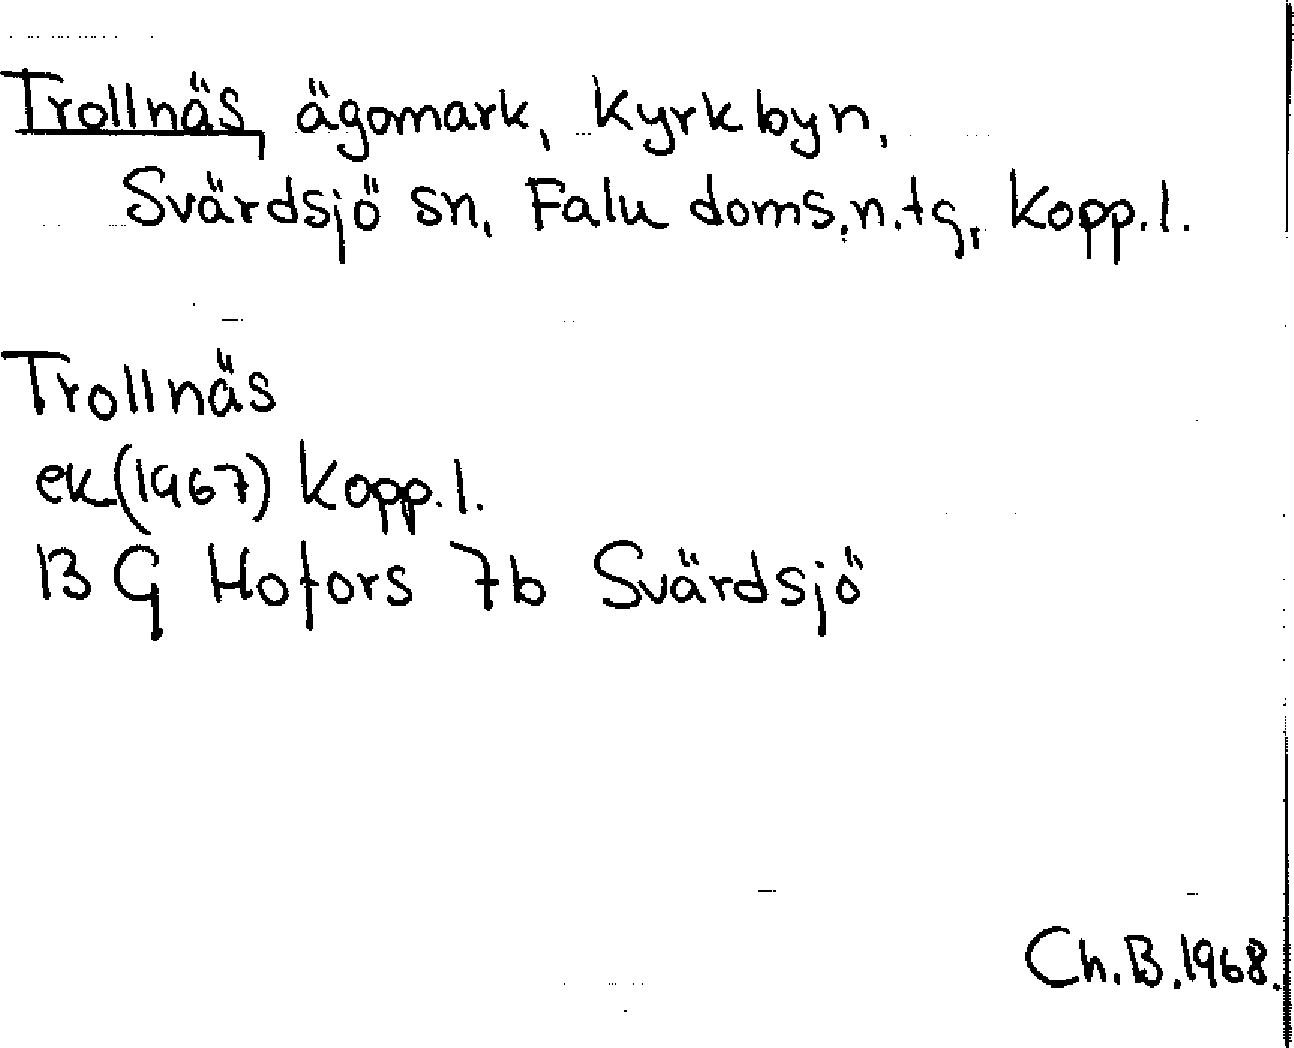 Trollnäs, ägomark, Kyrkbyn,
Svärdsjö sn, Falu doms.n.tg, Kopp.l.
Trollnäs
ek(1967) Kopp.l.
13 G Hofors 7b Svärdsjö
Ch.B.1968.